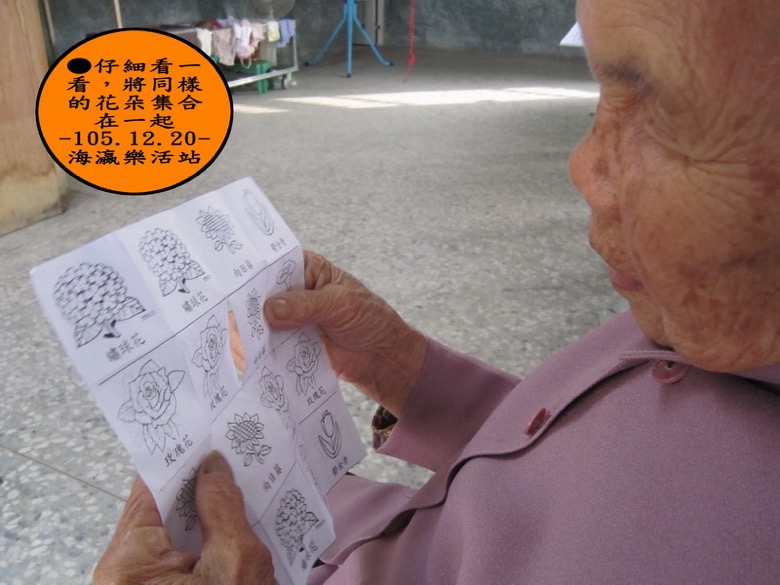 ●仔細看一
看，將同樣
的花朵集合
在一起
-105.12.20-
海瀛樂活站
繡球花
繡球花
向日葵
鬱金香
玫瑰花
玫瑰花
玫瑰花
向日葵
鬱金香
繡球花